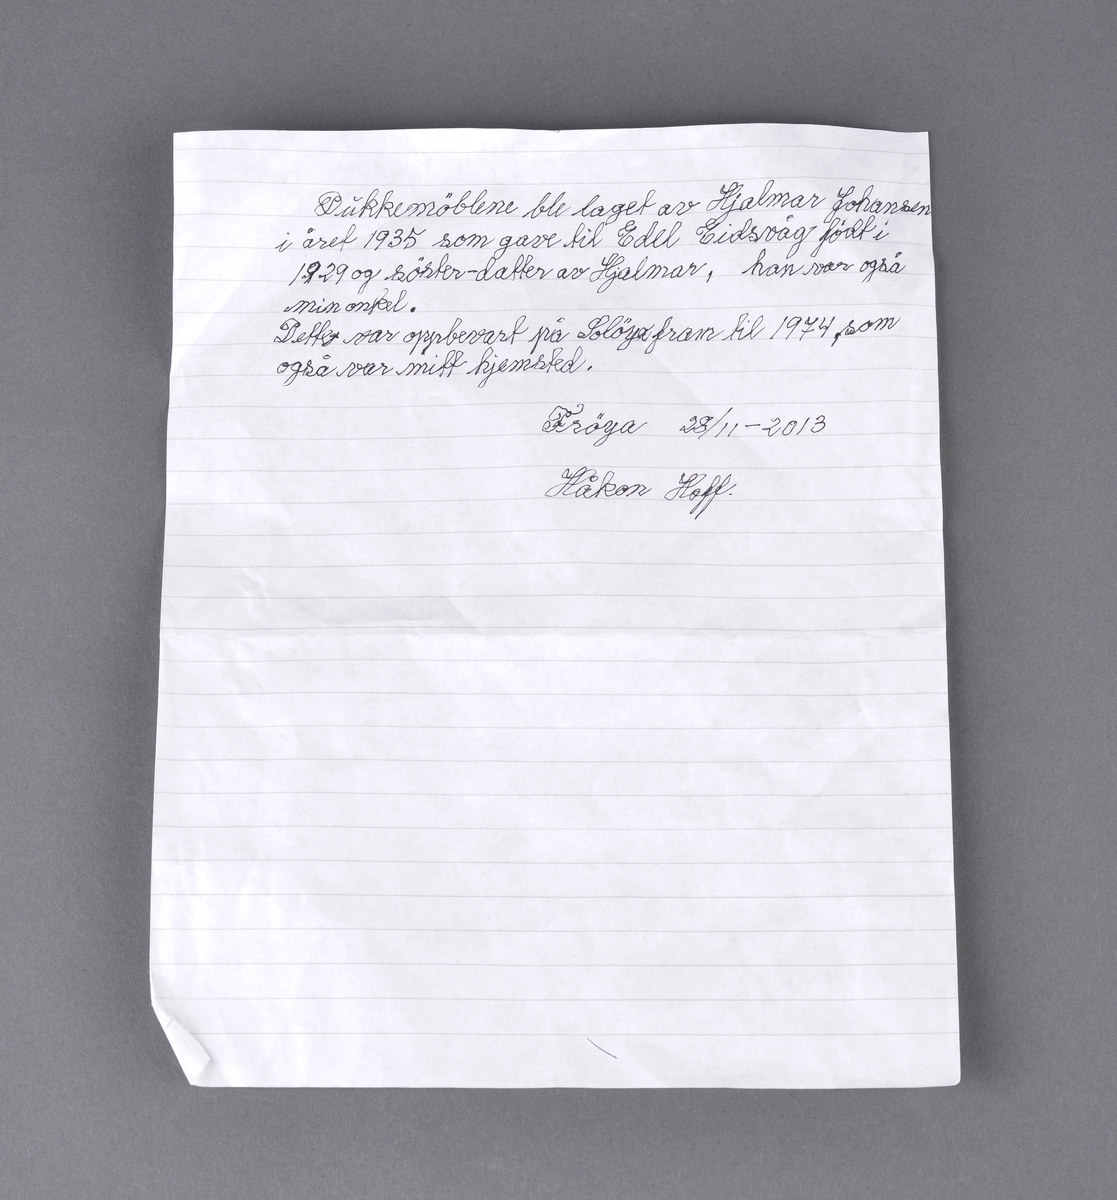 Dukkemöblene ble laget av Hjalmar Johansen
i året 1935 som gave til Edel Eidsvåg födt i
1929 og söster-datter av Hjalmar, han var også
min onkel.
Dette var oppbevart på Solöya fram til 1974, som
også var mitt hjemsted.
Fröya 28/11-2013
Håkon Hoff.